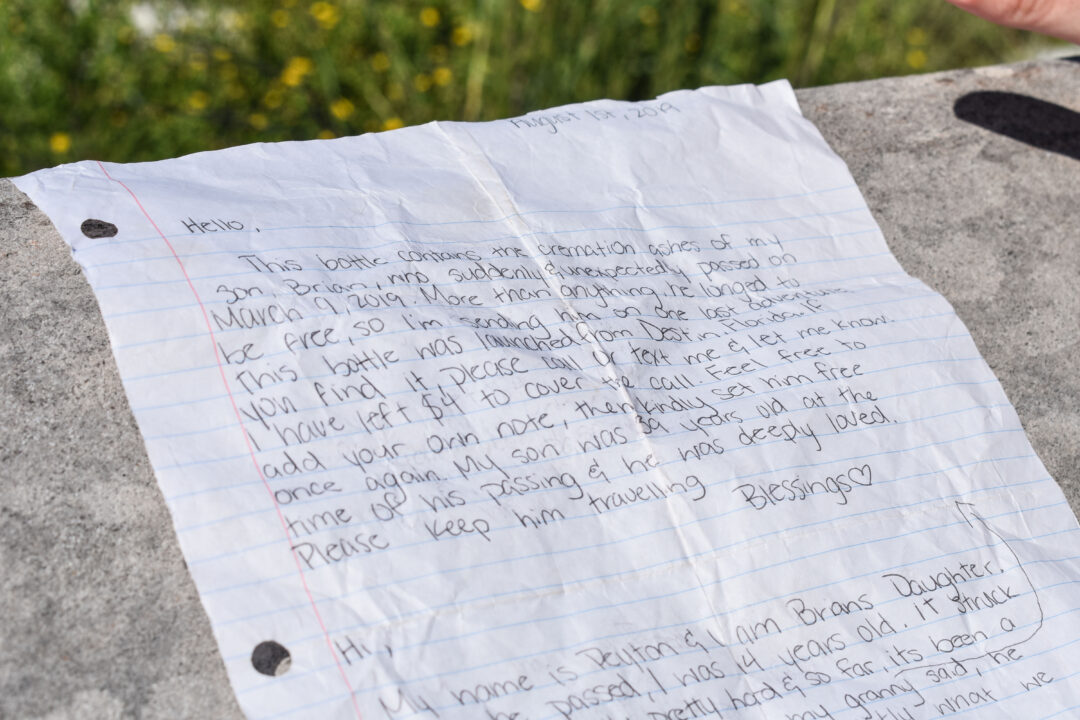 August 1st, 2019
Hello,
This bottle contains the cremation ashes of my
son, Brian, who suddenly & unexpectedly passed on
March 9, 2019. More than anything, he longed to
be free, so I'm sending him on one last adventure.
This bottle was launched from Destin, Florida. If
you find it, please call or text me & let me know.
I have left $4 to cover the call. Feel free to
add your own note, then kindly set him free
once again. My son was 39 years old at the
time of his passing & he was deeply loved.
Please keep him travelling
Blessings♡
Hi,
My name is Peyton & I am Brians Daughter.
he passed, I was 14 years old. it struck
pretty hard & so far its been a
my granny said, he
what we